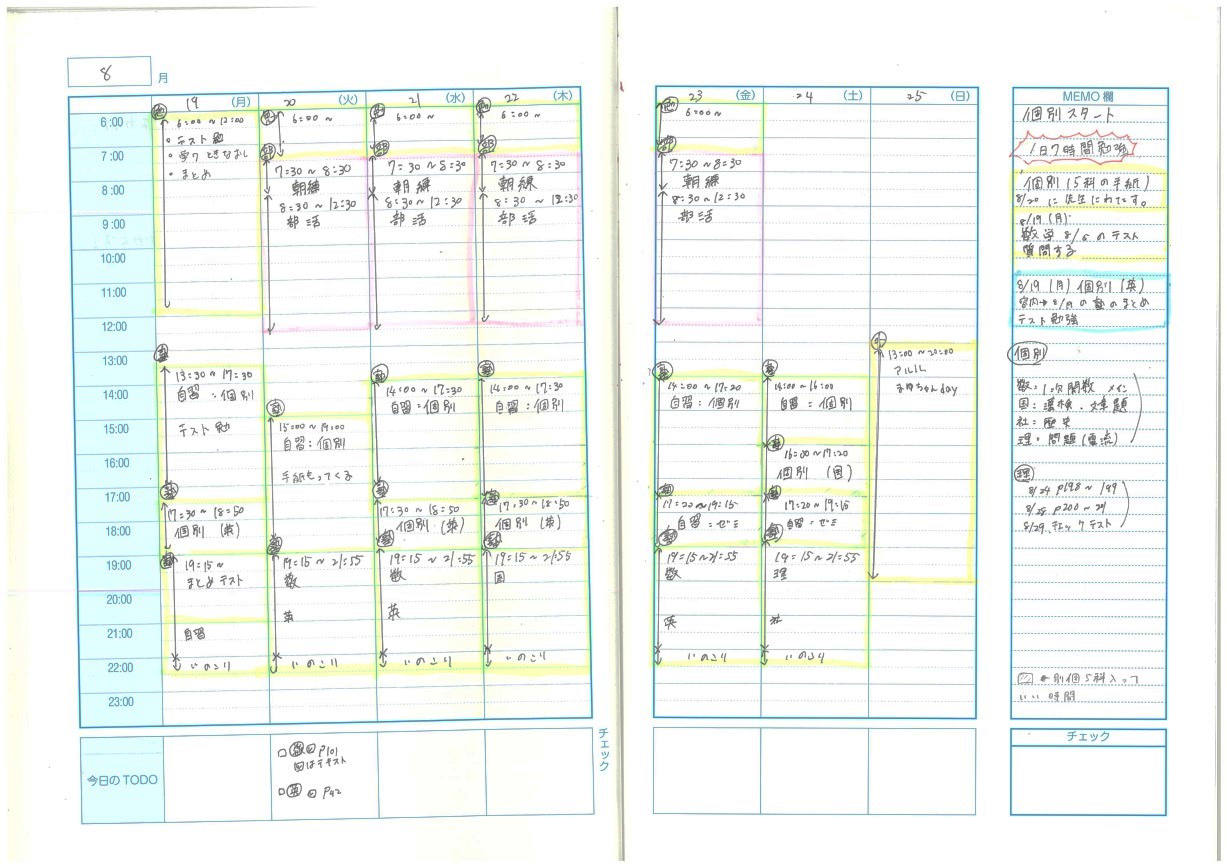 8 月
19 (月)
6:00 ~ 12:00
・テスト勉
・まとめ
13:30 ~ 17:30
自習:個別
テスト勉
17:30 ~ 18:50
個別 (英)
19:15 ~
まとめテスト
自習
いのこり
20 (火)
6:00 ~
7:30 ~ 8:30
朝練
8:30 ~ 12:30
部活
15:00 ~ 19:00
自習:個別
手紙もってくる
19:15 ~ 21:55
数
英
いのこり
21 (水)
6:00 ~
7:30 ~ 8:30
朝練
8:30 ~ 12:30
部活
14:00 ~ 17:30
自習:個別
17:30 ~ 18:50
個別 (英)
19:15 ~ 21:55
数
英
いのこり
22 (木)
6:00 ~
7:30 ~ 8:30
朝練
8:30 ~ 12:30
部活
14:00 ~ 17:30
自習:個別
17:30 ~ 18:50
個別 (英)
19:15 ~ 21:55
国
いのこり
6:00
7:00
8:00
9:00
10:00
11:00
12:00
13:00
14:00
15:00
16:00
17:00
18:00
19:00
20:00
21:00
22:00
23:00
今日のTODO
□ 数 P101
□ 英 P42
チェック
23 (金)
6:00 ~
7:30 ~ 8:30
朝練
8:30 ~ 12:30
部活
14:00 ~ 17:20
自習:個別
17:20 ~ 19:15
自習:ゼミ
19:15 ~ 21:55
数
英
いのこり
24 (土)
14:00 ~ 16:00
自習:個別
16:00 ~ 17:20
個別 (国)
17:20 ~ 19:15
自習:ゼミ
19:15 ~ 21:55
理
社
いのこり
25 (日)
13:00 ~ 20:00
MEMO欄
個別スタート
1日7時間勉強
個別(5科の手紙)
8/20に先生にわたす。
8/19 (月)
数学 8/5のテスト
質問する
8/19 (月) 個別 (英)
テスト勉強
個別
数:1次関数 メイン
国:漢検、文章題
社:歴史
理:問題(電流)
理
8/24 P198 ~ 199
8/29 チェックテスト
いい時間
チェック